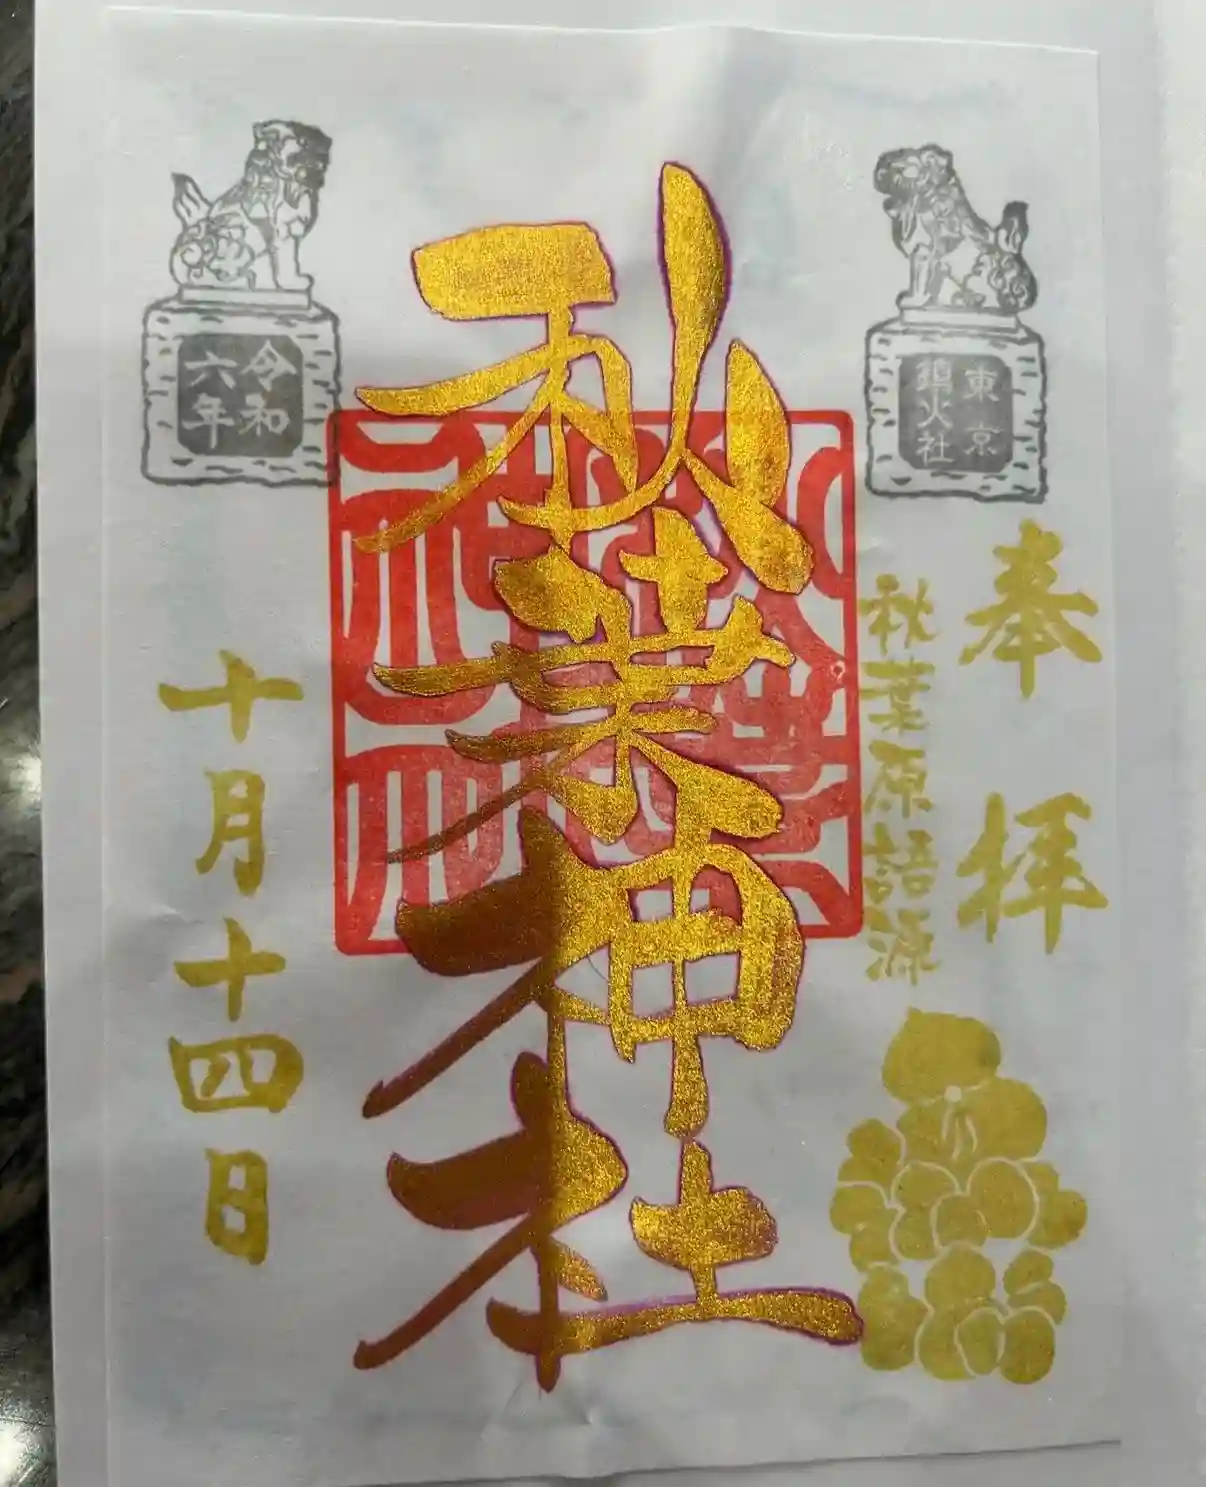 東京
鎮火社
奉拝
秋葉原語源
秋葉神社
令和
六年
十月十四日